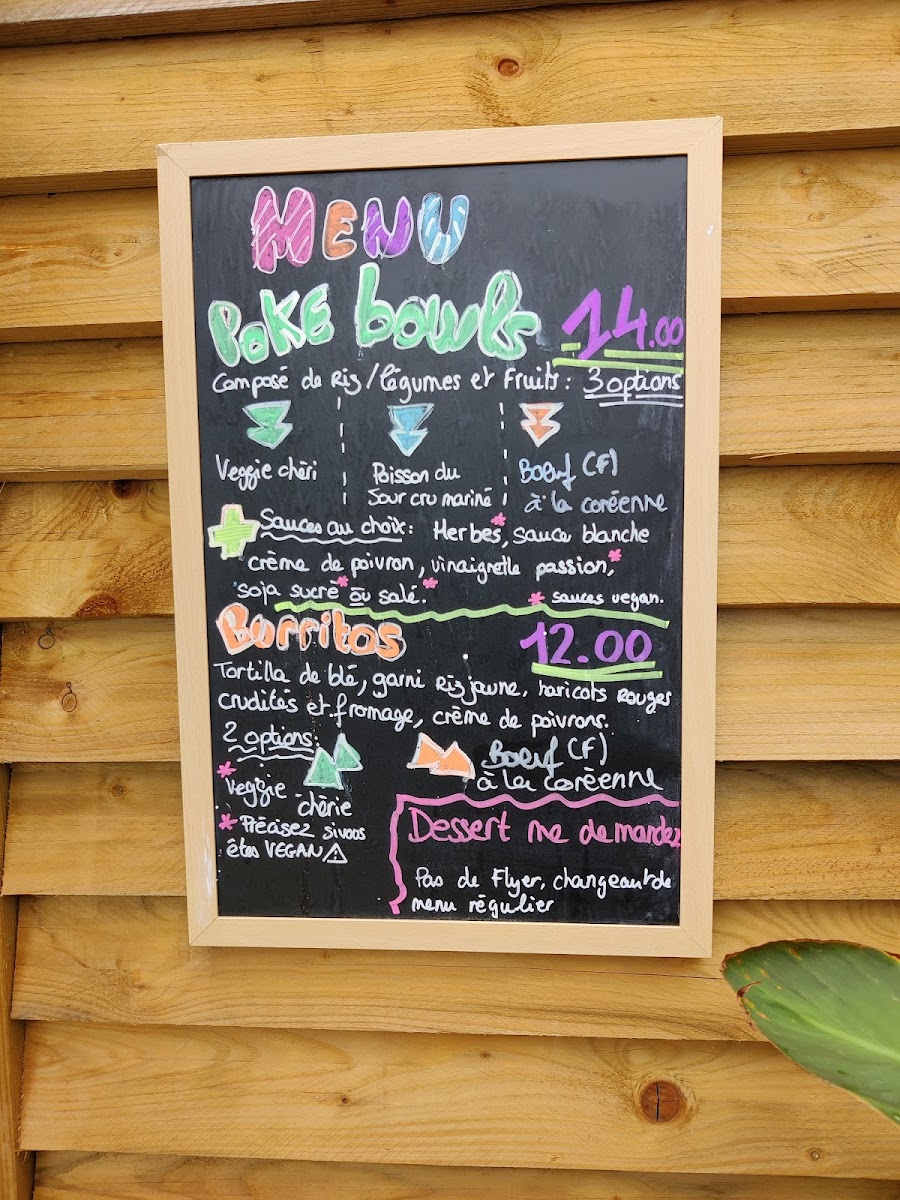 MENU
POKE bowls 14.00
Composé de Riz/légumes et Fruits: 3 options
Veggie chéri
Poisson du
Jour cru mariné
Boeuf (F)
à la coréenne
+ Sauces au choix: Herbes*, sauce blanche
crème de poivron, vinaigrette passion,*
soja sucré* ou salé.*
* sauces vegan.
Burritos 12.00
Tortilla de blé, garni Riz jaune, haricots Rouges
crudités et fromage, crème de poivrons.
2 options:
* Veggie
chérie
Boeuf (F)
à la coréenne
* Précisez si vous
êtes VEGAN ⚠
Dessert me demander
Pas de Flyer, changeant de
menu régulier